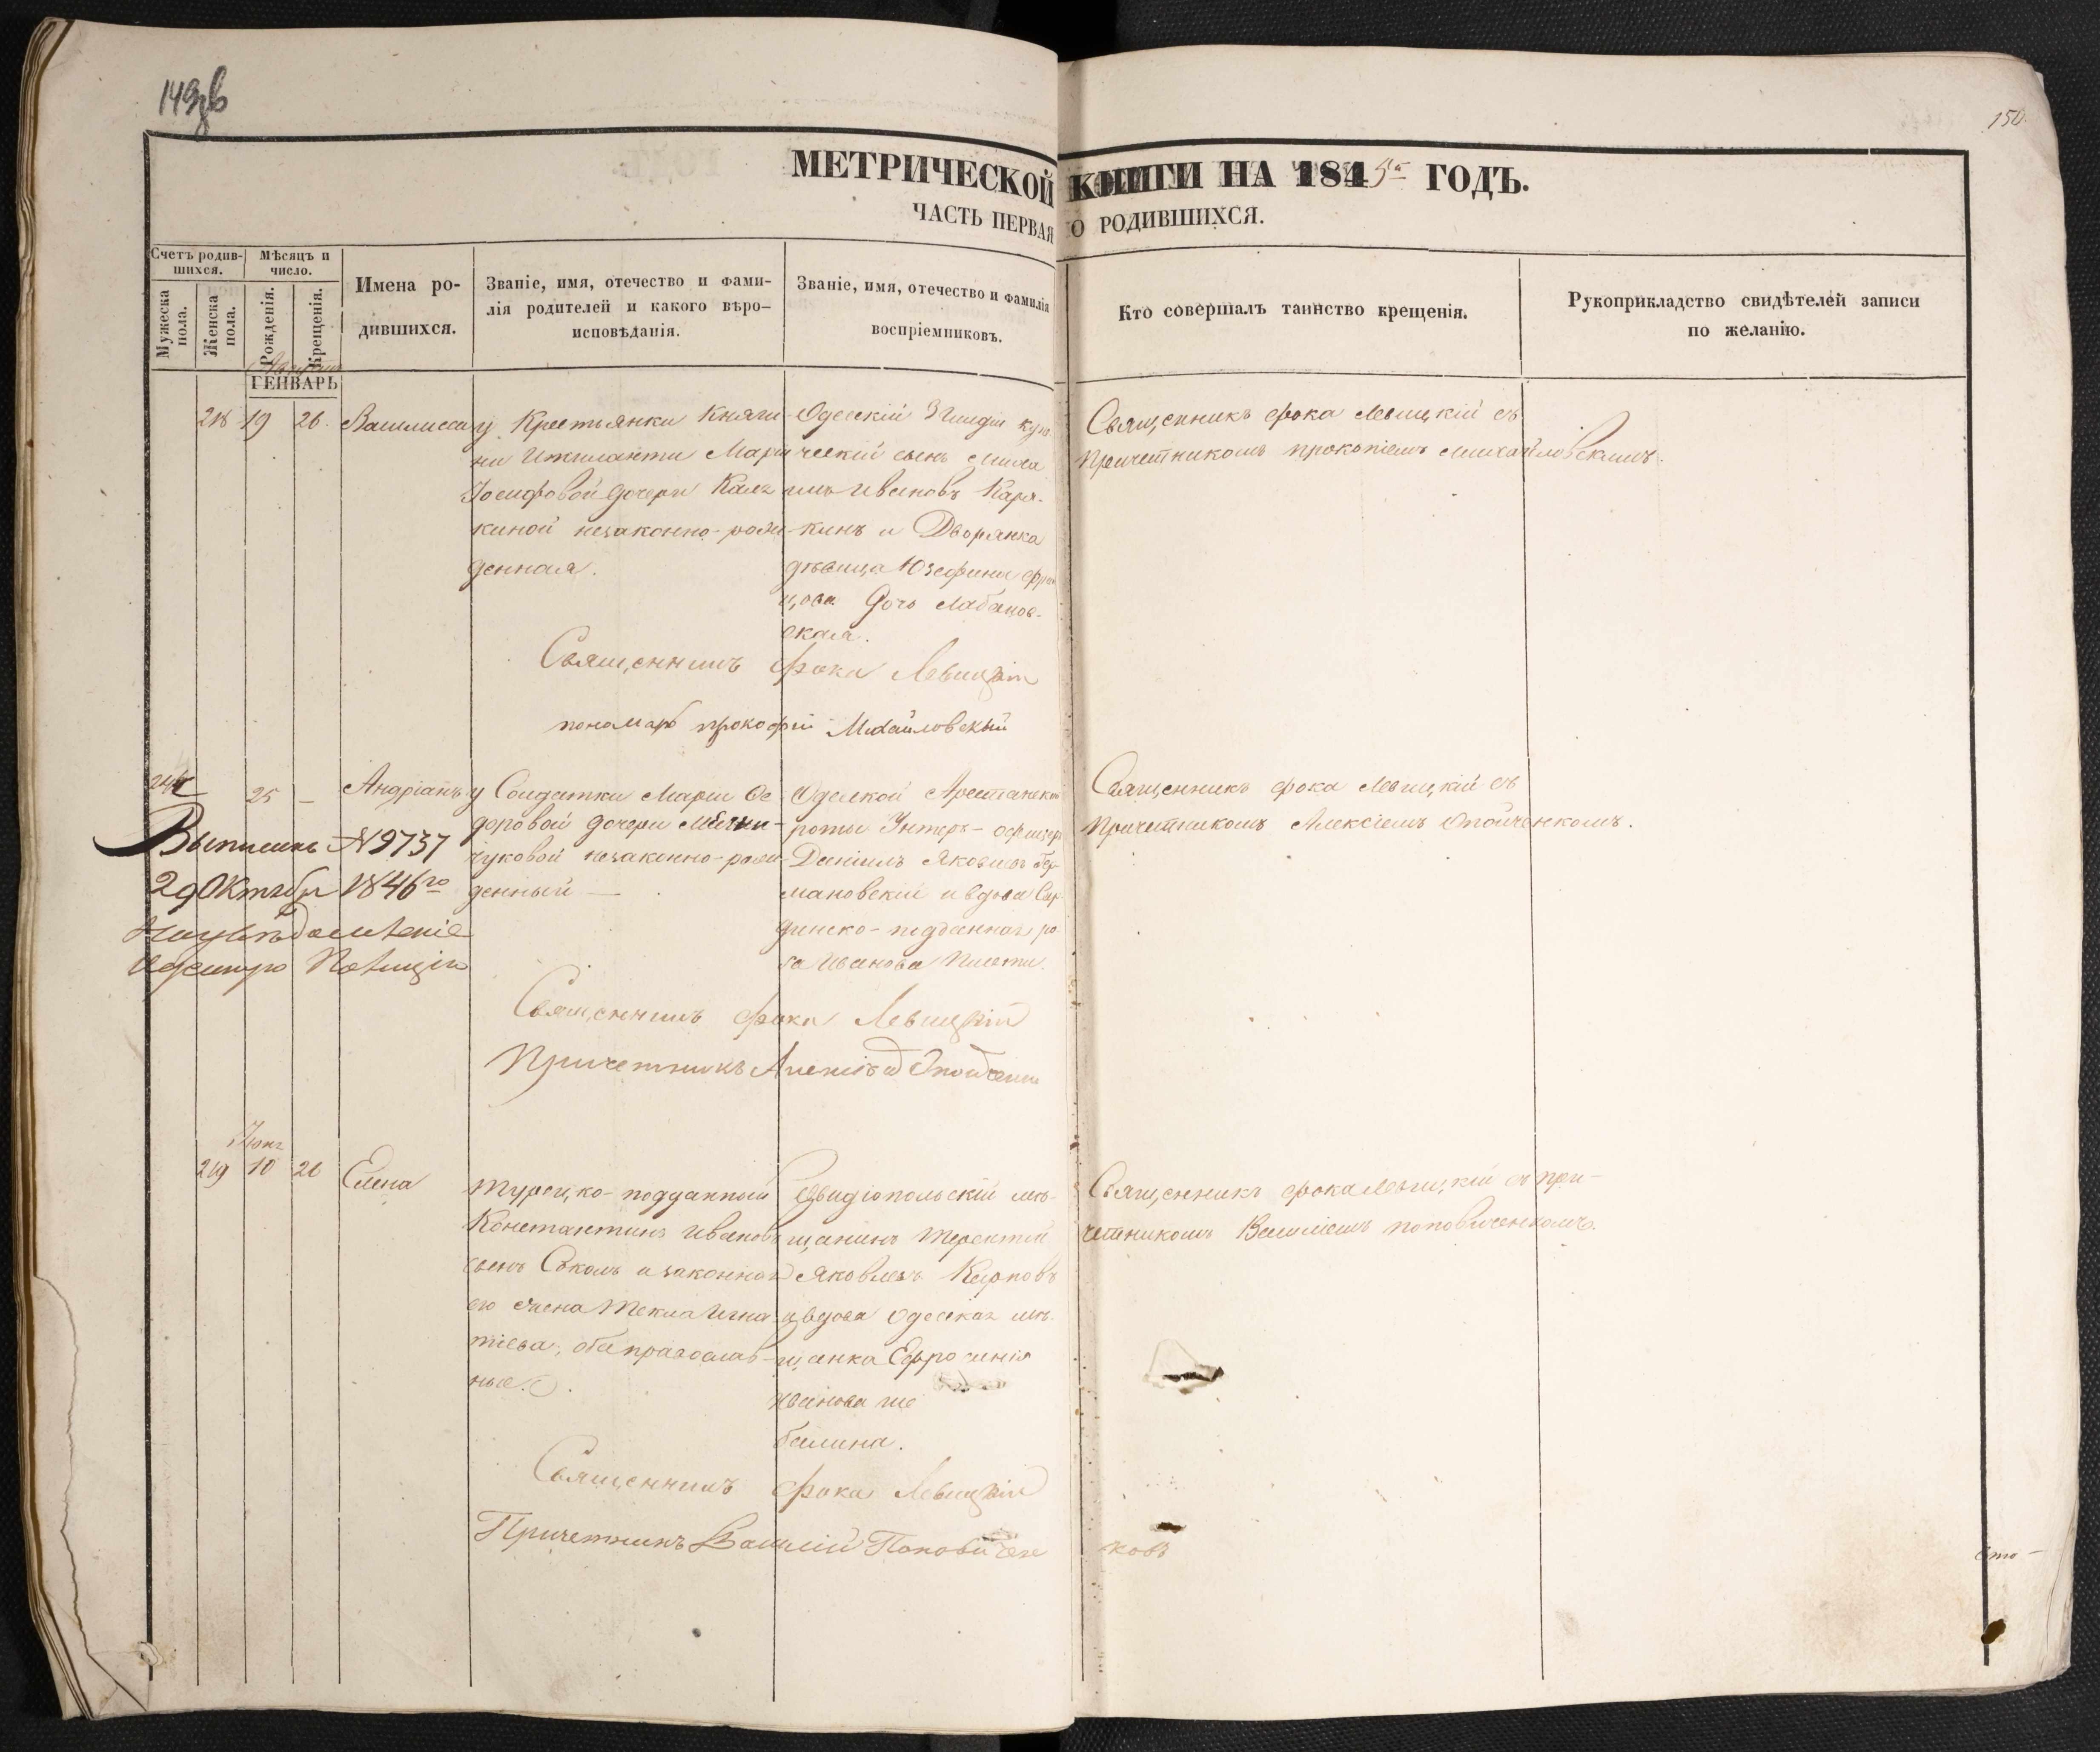 149
150.
МЕТРИЧЕСКОЙ КНИГИ НА 1845 ГОДЪ.
ЧАСТЬ ПЕРВАЯ О РОДИВШИХСЯ.
Счетъ родив-
шихся.
Мужеска пола.
Женска пола.
Мѣсяцъ и
число.
Рожденія.
Крещенія.
Имена ро-
дившихся.
Званіе, имя, отечество и фами-
лія родителей и какого вѣро-
исповѣданія.
Званіе, имя, отечество и фамилія
воспріемниковъ.
Кто совершалъ таинство крещенія.
Рукоприкладство свидѣтелей записи
по желанію.
ГЕНВАРЬ
218 19 26. Василисса
у Крестьянки Княги-
ни Ипсиланти Маріи
Іосифовой дочери Каля-
киной незаконно-рож-
денная.
Одесскій 3 гильдіи купе-
ческій сынъ Миха
илъ Ивановъ Каря-
кинъ и Дворянка
дѣвица Юзефина Фран
цова дочь Лабанов-
ская.
Священникъ Фока Левицкій съ
причетникомъ Прокопіемъ Михайловскимъ.
Священникъ Фока Левицкій
пономарь Прокофій Михайловскый
25 — Андріанъ
у Солдатки Маріи Ѳе
доровой дочери
чуковой незаконно-рож-
денный —
Одесской Арестантской
роты Унтеръ-офицеръ
Даніилъ Яковлевъ
мановскій и вдова Сар
динско-подданная
Иванова
Священникъ Фока Левицкій съ
причетникомъ Алексіемъ Опойченкомъ.
Выписанъ № 9737
29 Октября 1846го
Священникъ Фока Левицкій
Причетникъ Алексій Опойченко
219 10 26 Елена
Турецко-подданный
Константинъ Ивановъ
сынъ Соколъ и законная
его жена Текла Игна
тіева, оба православ-
ные.
Овидіопольскій мѣ-
щанинъ Терентій
Яковлевъ Карповъ
и вдова Одесская мѣ-
щанка Ефросинія
Иванова ше
балина.
Священникъ Фока Левицкій съ при-
четникомъ Василіемъ Поповиченкомъ.
Священникъ Фока Левицкій
Причетникъ Василій Поповиченковъ